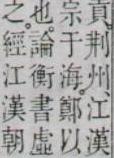 貢荆州江漢
宗于海鄭以
也論衡書虛
之經江漢朝